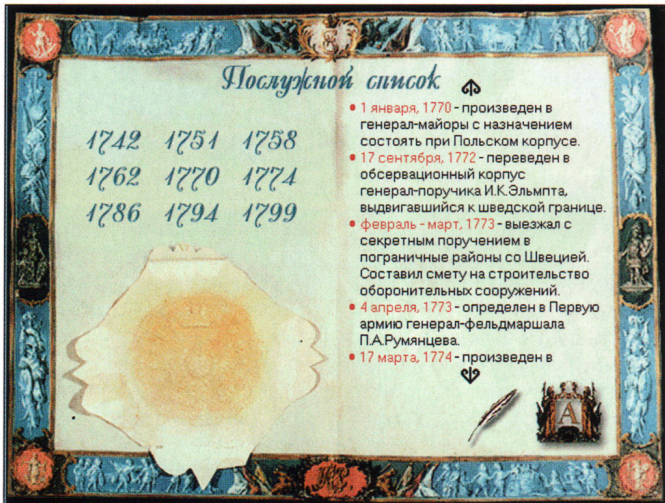 Послужной список
1742 1751 1758
1762 1770 1774
1786 1794 1799
• 1 января, 1770 - произведен в
генерал-майоры с назначением
состоять при Польском корпусе.
• 17 сентября, 1772 - переведен в
обсервационный корпус
генерал-поручика И.К.Эльмпта,
выдвигавшийся к шведской границе.
• февраль - март, 1773 - выезжал с
секретным поручением в
пограничные районы со Швецией.
Составил смету на строительство
оборонительных сооружений.
• 4 апреля, 1773 - определен в Первую
армию генерал-фельдмаршала
П.А.Румянцева.
• 17 марта, 1774 - произведен в
А